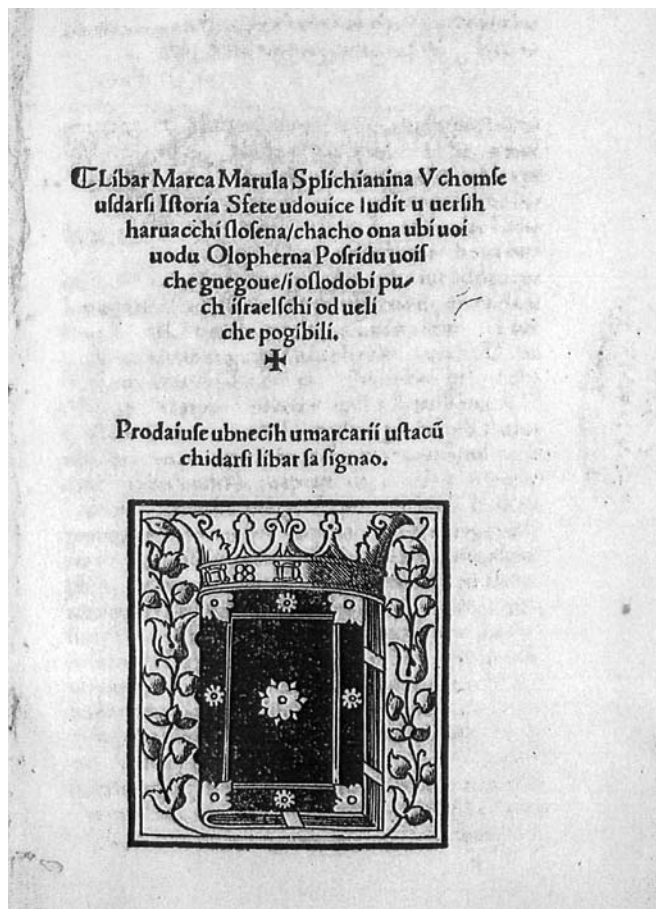 ⁋Libar Marca Marula Splichianina Vchomſe
uſdarſi Iſtoria Sfete udouice Iudit u uerſih
haruacchi ſloſena/chacho ona ubi uoi
uodu Olopherna Poſridu uoiſ
che gnegoue/i oſlodobi pu⸗
ch iſraelſchi od ueli
che pogibili.
✠
Prodaiuſe ubnecih umarcarii uſtacū
chidarſi libar ſa ſignao.